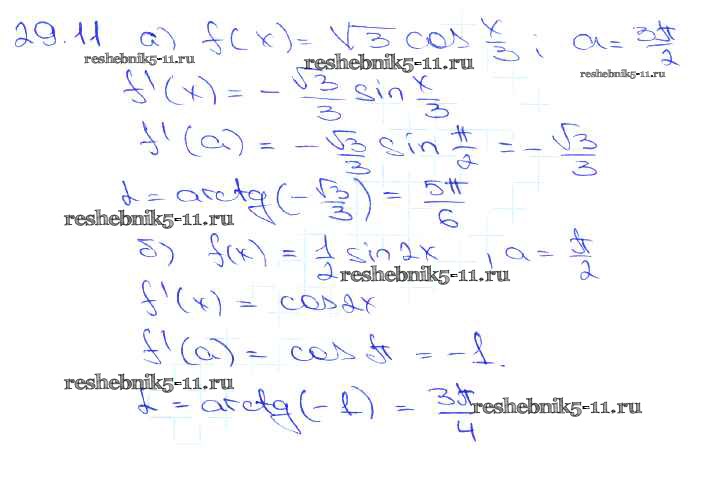 29.11 а) f(x) = √3 cos x/3 ; a = 3π/2
reshebnik5-11.ru reshebnik5-11.ru reshebnik5-11.ru
f'(x) = - √3/3 sin x/3
f'(a) = - √3/3 sin π/2 = - √3/3
α = arctg(- √3/3) = 5π/6
reshebnik5-11.ru
б) f(x) = 1/2 sin 2x , a = π/2
reshebnik5-11.ru
f'(x) = cos 2x
f'(a) = cos π = -1.
reshebnik5-11.ru
α = arctg(-1) = 3π/4
reshebnik5-11.ru